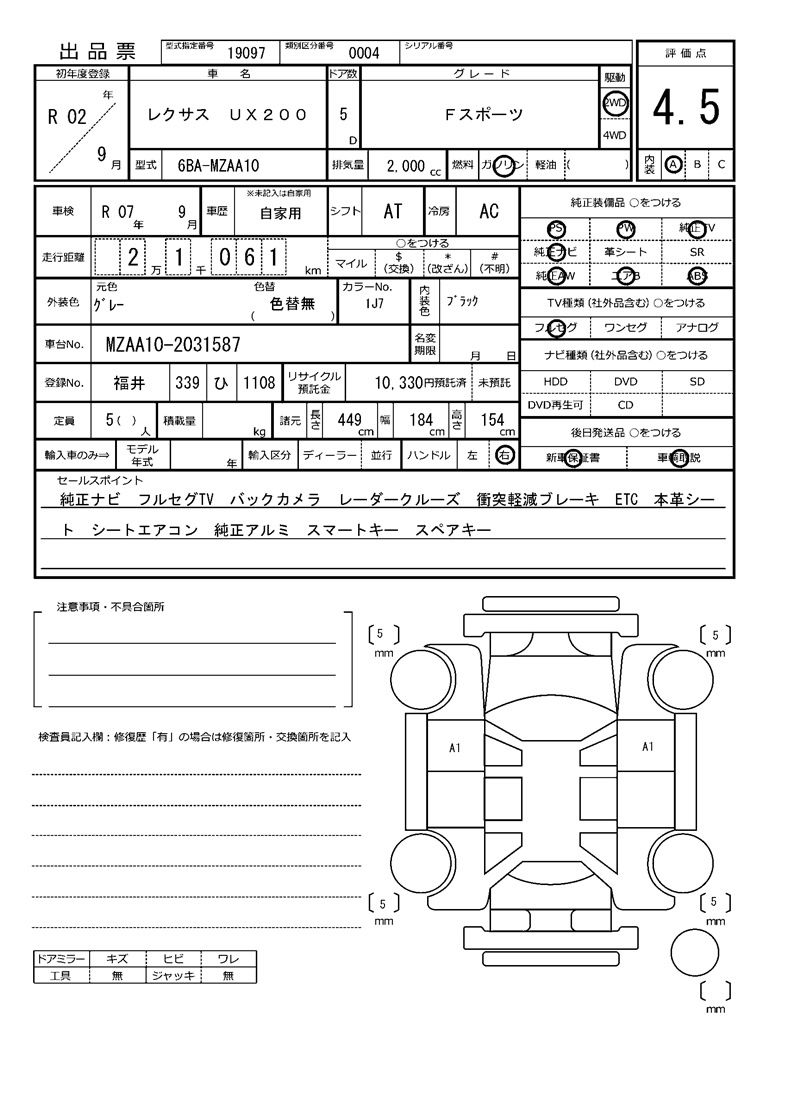 出品票
型式指定番号 19097 類別区分番号 0004 シリアル番号
評価点
4.5
内装 A B C
初年度登録 車名 ドア数 グレード 駆動
R 02 年 9 月
レクサス UX200
5 D
Fスポーツ
2WD
4WD
型式 6BA-MZAA10 排気量 2,000 cc 燃料 ガソリン 軽油 ( )
車検 R 07 年 9 月 車歴 ※未記入は自家用 自家用 シフト AT 冷房 AC
走行距離 2 万 1 千 0 6 1 km
○をつける
マイル $ (交換) * (改ざん) # (不明)
外装色 元色 グレー 色替 ( 色替無 ) カラーNo. 1J7 内装色 ブラック
車台No. MZAA10-2031587 名変期限 月 日
登録No. 福井 339 ひ 1108 リサイクル預託金 10,330円預託済 未預託
定員 5 ( ) 人 積載量 kg 諸元 長さ 449 cm 幅 184 cm 高さ 154 cm
輸入車のみ⇒ モデル年式 年 輸入区分 ディーラー 並行 ハンドル 左 右
純正装備品 ○をつける
PS PW 純正TV
純正ナビ 革シート SR
純正AW エアB ABS
TV種類 (社外品含む) ○をつける
フルセグ ワンセグ アナログ
ナビ種類 (社外品含む) ○をつける
HDD DVD SD
DVD再生可 CD
後日発送品 ○をつける
新車保証書 車輌取説
セールスポイント
純正ナビ フルセグTV バックカメラ レーダークルーズ 衝突軽減ブレーキ ETC 本革シー
ト シートエアコン 純正アルミ スマートキー スペアキー
注意事項・不具合箇所
検査員記入欄：修復歴「有」の場合は修復箇所・交換箇所を記入
ドアミラー キズ ヒビ ワレ
工具 無 ジャッキ 無
5 mm
5 mm
A1
A1
5 mm
5 mm
mm